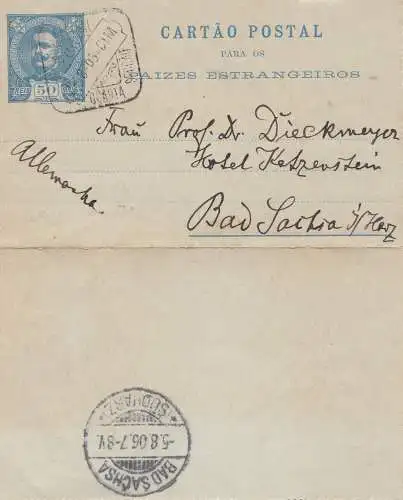 50
CARTÃO POSTAL
PARA OS
PAIZES ESTRANGEIROS
Frau Prof. Dr. Dieckmeyer
Hotel Katzenstein
Allemanha
Bad Sachsa i/Harz
BAD SACHSA
-5.8.06.7-8V.
*(SÜDHARZ)*